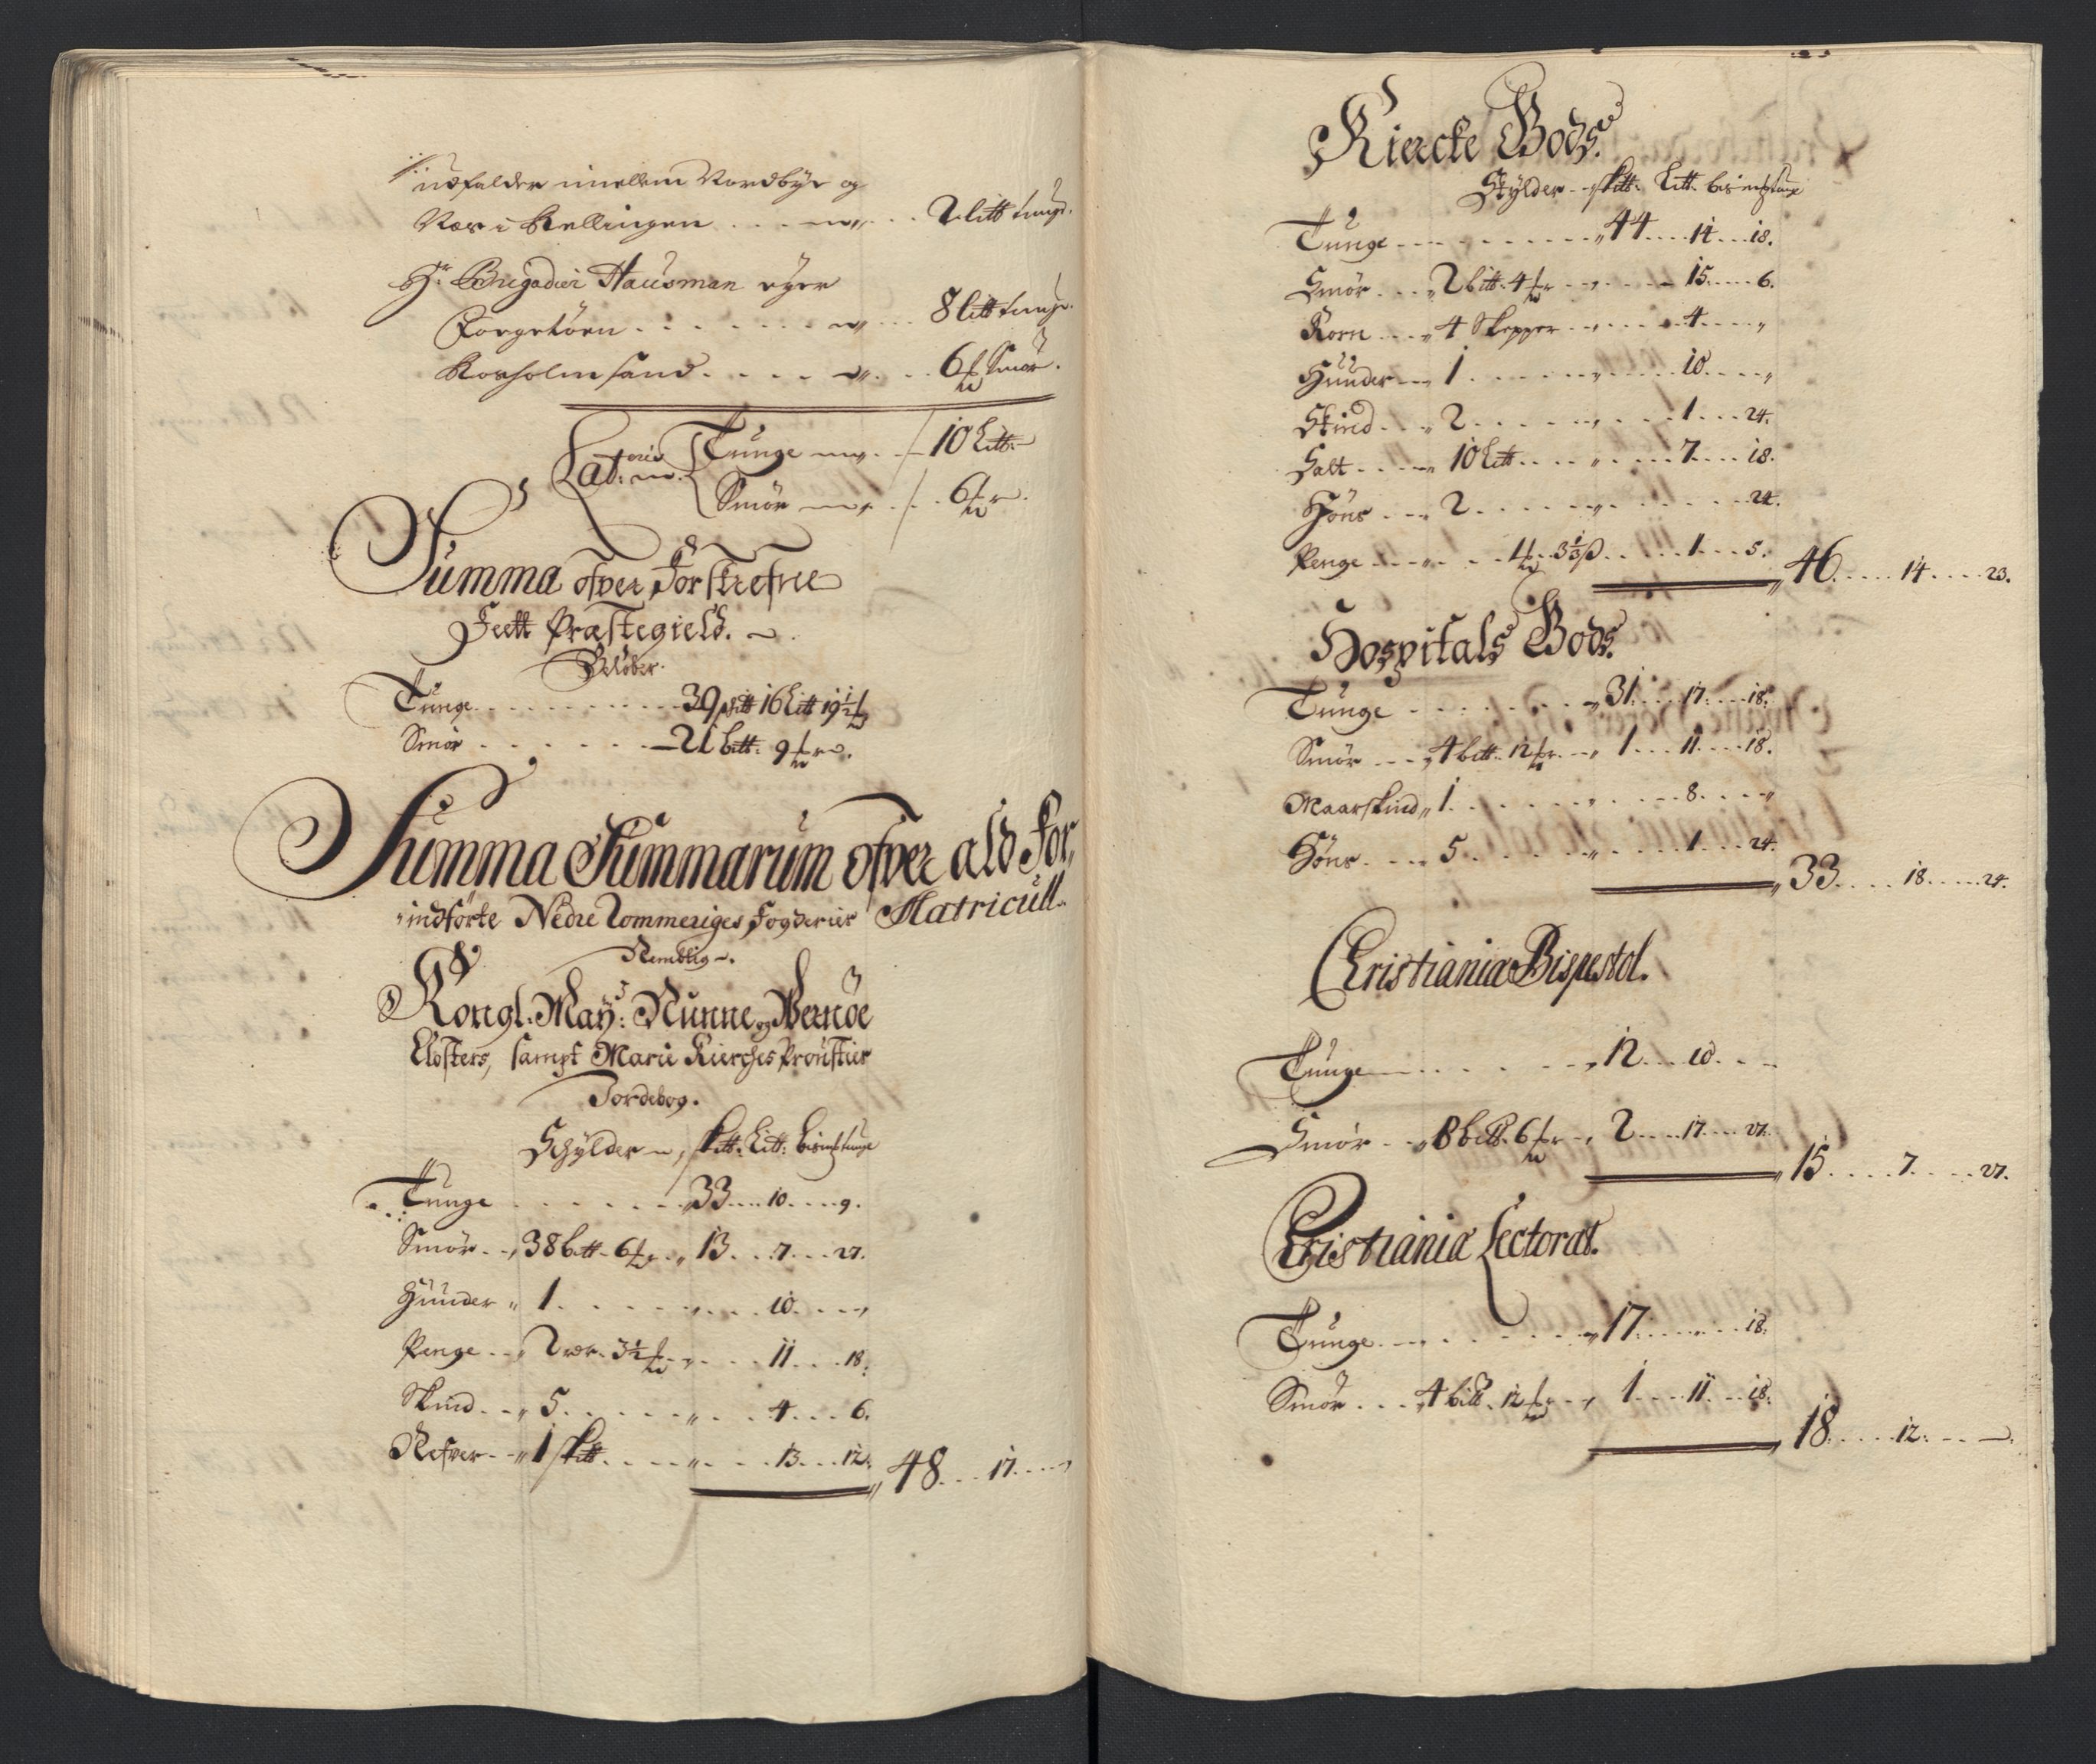 udfalder imellem Nordbye og
Næs i Kellingen . . . 2 Litt tunge.
Hr. Brigadier Hausman eyer
Torgetöen . . . 8 Litt tunge.
Korsholm sand . . . 6 Smör.
Lat: Tunge . . . 10 Litt
Smör . . . 6
Summa ofver Forskrefne
Feett Præstegield.
Beløber.
Tunge . . . 39 skitt 16 Litt 19½
Smör . . . 21 bitt: 9
Summa Summarum ofver ald For,
indförte Nedre Rommeriges Fogderies Matricull
Nemblig
Kongl: May: Nunne og Wernöe
Closters, sampt Marie Kierches Proustier
Jordebog.
Schylder skitt: Litt: bismktunge
Tunge . . . 33 . . 10 . . 9.
Smör . . 38 bitt 6 . . 13 . . 7 . . 27.
Huuder 1 . . . 10
Penge . . 2 ort 3½ . . 11 . . 18.
Skind . . 5 . . . 4 . . 6.
Refver . . 1 skitt . . . 13 . . 12. 48 . . 17
Kiercke Gods.
Skylder skitt: Litt: bismktunge
Tunge . . . 44 . . 14 . . 18.
Smör . . 2 bitt 4 . . . 15 . . 6.
Korn . . 4 Skepper . . 4
Huuder 1 . . . 10
Skind . . 2 . . . 1 . . 24.
Salt . . 10 Litt . . . 7 . . 18.
Höns . . 2 . . . 24.
Penge . . . 3⅓ β . . 1 . . 5. 46 . . 14 . . 23.
Hospitals Gods.
Tunge . . . 31 . . 17 . . 18.
Smör . . 4 bitt. 12 . . 1 . . 11 . . 18.
Maarskind 1 . . . 8
Höns . . 5 . . . 1 . . 24. 33 . . 18 . . 24.
Cristiania Bispestol.
Tunge . . . 12 . . 10
Smör . . 8 bitt. 6 . . 2 . . 17 . . 27. 15 . . 7 . . 27.
Cristiania Lectorat.
Tunge . . . 17 . . . 18.
Smör . . 4 bitt. 12 . . 1 . . 11 . . 18. 18 . . 12